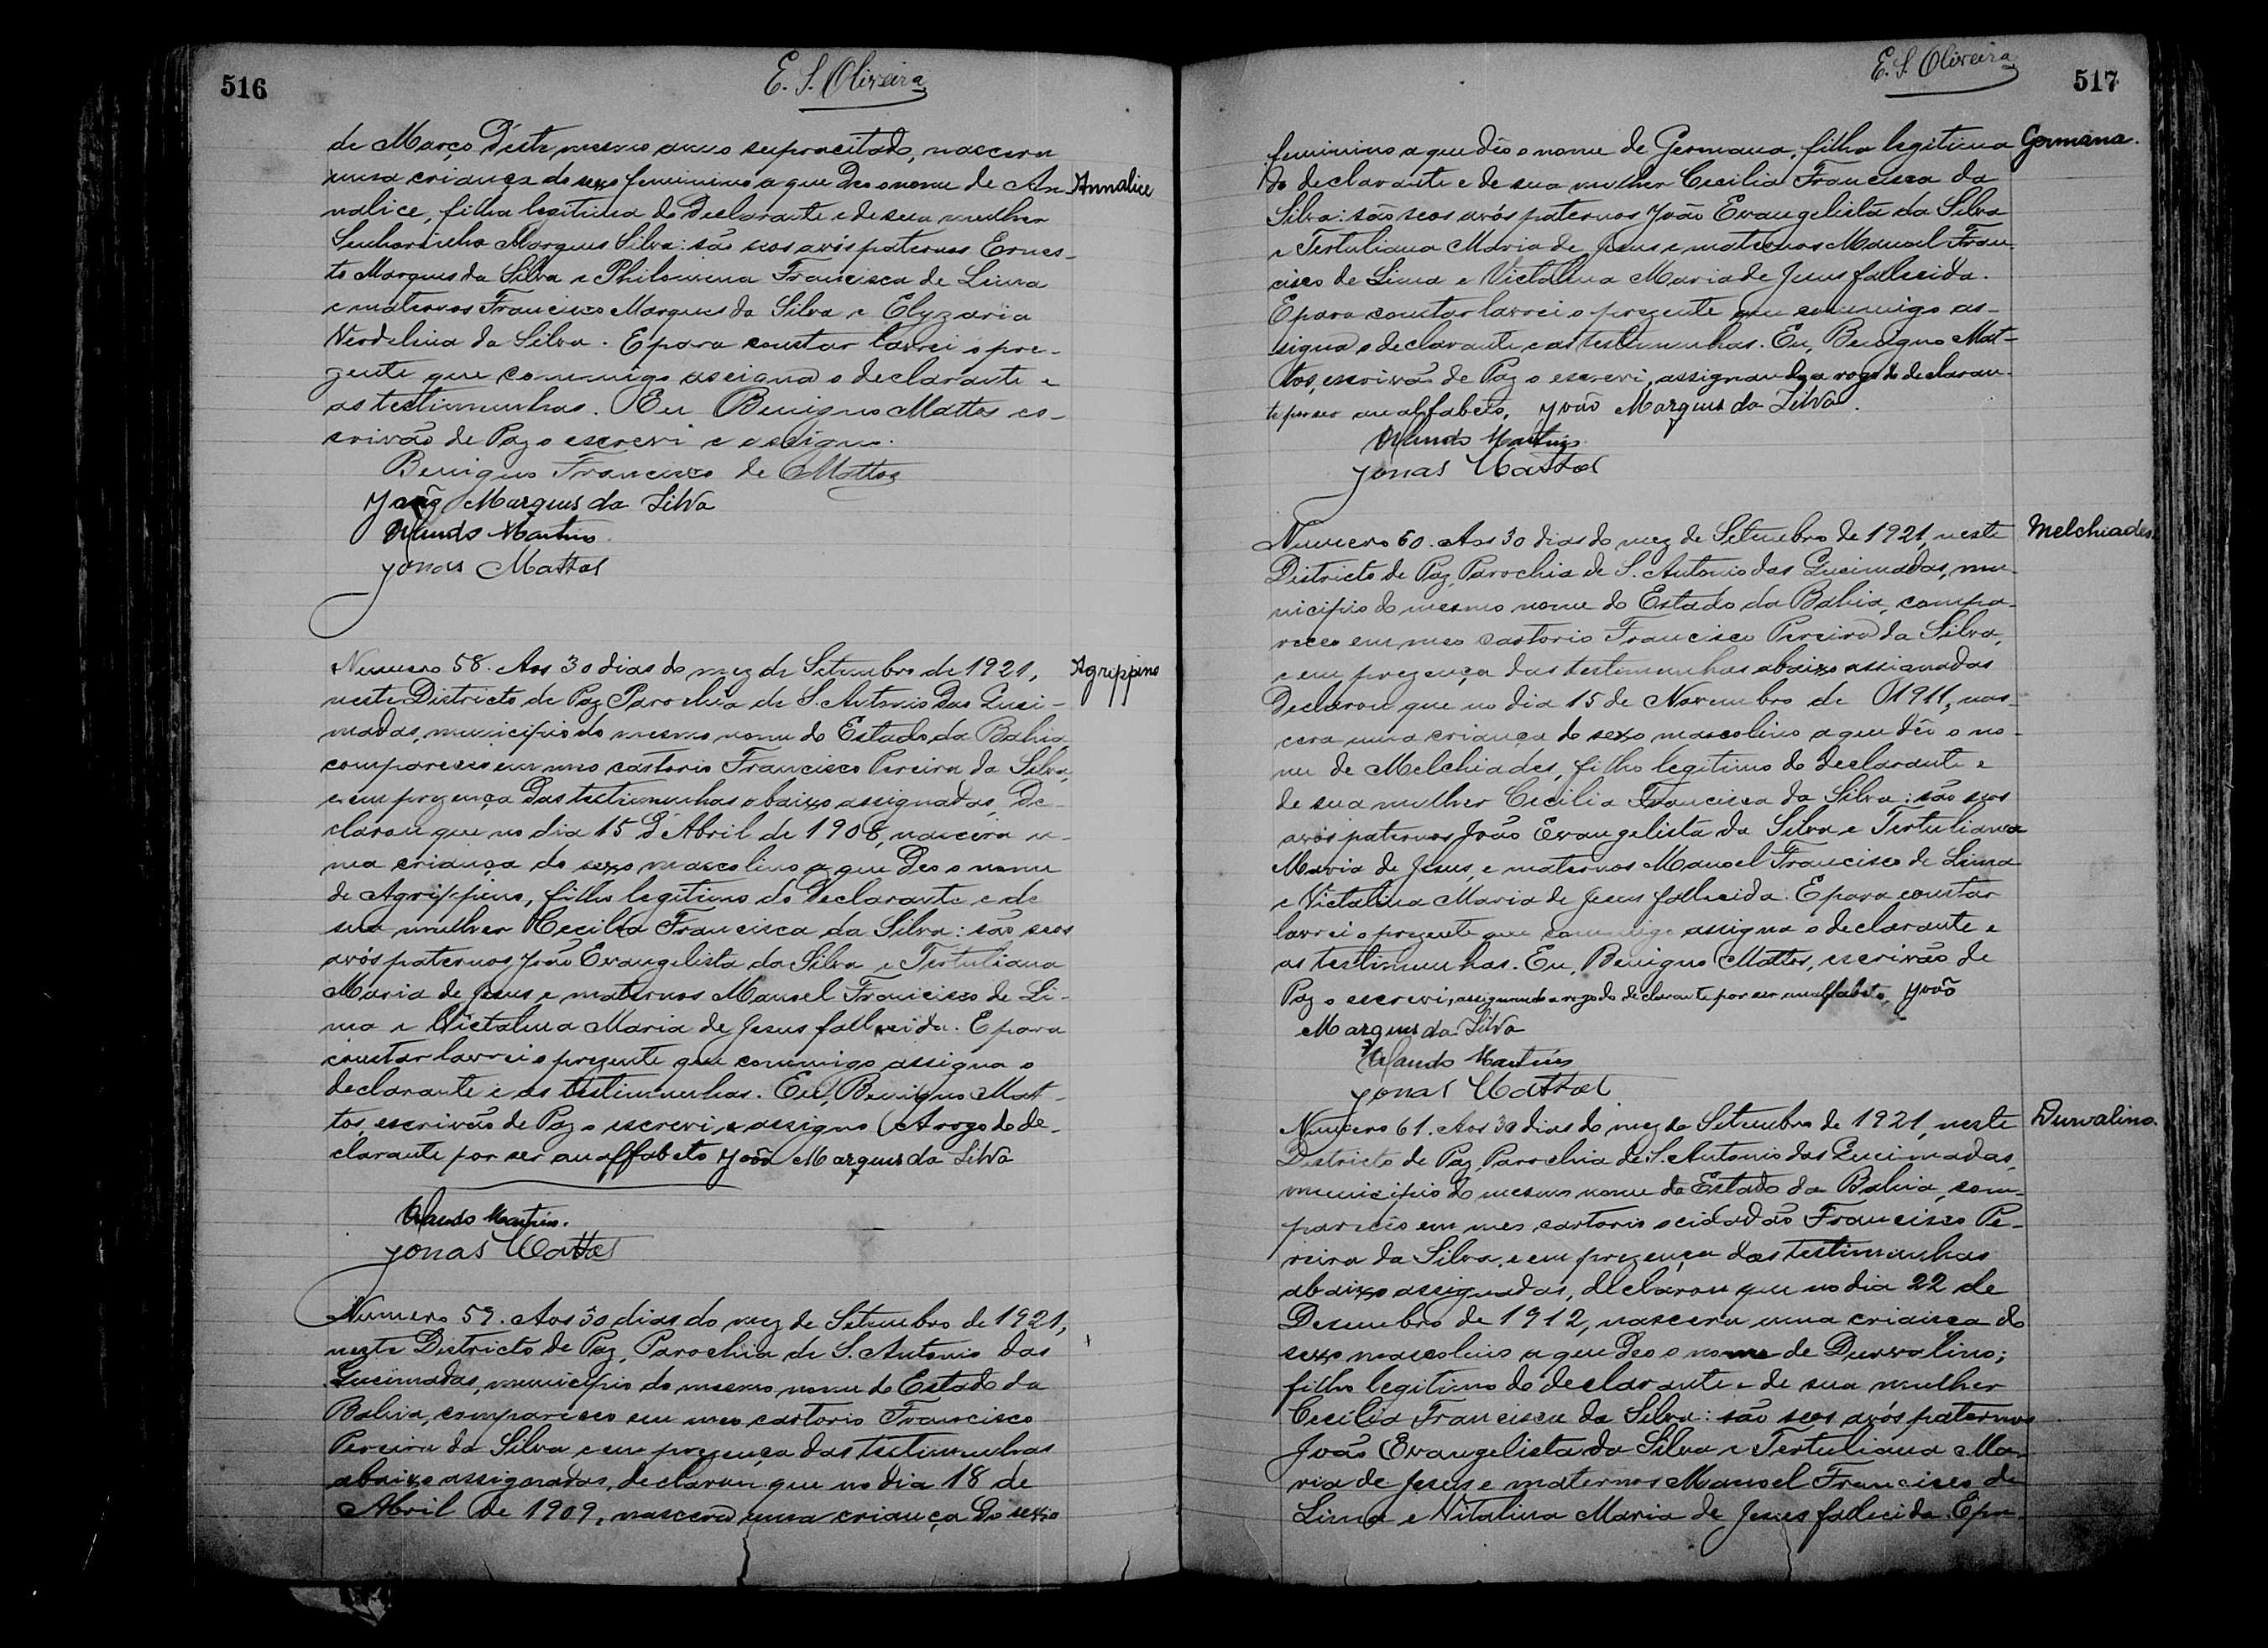 516
E. S. Oliveira
de Março d'este mesmo anno supracitado, nascera
uma criança do sexo feminino a que deo o nome de An- Annalice
nalice, filha legitima do declarante e de sua mulher
Senhorinha Marques Silva: são seos avós paternos Ernes-
to Marques da Silva e Philomena Francisca de Lima
e maternos Francisco Marques da Silva e Elyzaria
Verdelina da Silva. E para constar lavrei o pre-
zente que commigo assigna o declarante e
as testimunhas. Eu Benigno Mattos es-
crivão de Paz o escrevi e assigno.
Benigno Francisco de Mattos
João Marques da Silva
Orlando Martins
Jonas Mattos
Numero 58. Aos 30 dias do mez de Setembro de 1921, Agrippino
neste Districto de Paz, Parochia de S. Antonio das Quei-
madas, municipio do mesmo nome do Estado da Bahia,
compareceo em meo cartorio Francisco Pereira da Silva,
e em prezença das testimunhas abaixo assignadas, De-
clarou que no dia 15 d'Abril de 1908, nascera u-
ma criança do sexo mascolino a que deo o nome
de Agrippino, filho legitimo do declarante e de
sua mulher Cecilia Francisca da Silva: são seos
avós paternos João Evangelista da Silva e Tertuliana
Maria de Jesus e maternos Manoel Francisco de Li-
ma e Victalina Maria de Jesus fallecida. E para
constar lavrei o prezente que commigo assigna o
declarante e as testimunhas. Eu, Benigno Mat-
tos, escrivão de Paz o escrevi e assigno A rogo do de-
clarante por ser analfabeto João Marques da Silva
Orlando Martins.
Jonas Mattos
Numero 59. Aos 30 dias do mez de Setembro de 1921,
neste Districto de Paz, Parochia de S. Antonio das
Queimadas, municipio do mesmo nome do Estado da
Bahia, compareceo em meo cartorio Francisco
Pereira da Silva e em prezença das testimunhas
abaixo assignadas, declarou que no dia 18 de
Abril de 1909, nascera uma criança do sexo
E. S. Oliveira
517
feminino a que dêo o nome de Germana, filha legitima Germana.
do declarante e de sua mulher Cecilia Francisca da
Silva: são seos avós paternos João Evangelista da Silva
e Tertuliana Maria de Jesus e maternos Manoel Fran-
cisco de Lima e Victalina Maria de Jesus fallecida.
E para constar lavrei o prezente que commigo as-
signa o declarante e as testimunhas. Eu, Benigno Mat-
tos, escrivão de Paz o escrevi, assignando a rogo do declaran-
te por ser analfabeto, João Marques da Silva.
Orlando Martins
Jonas Mattos
Numero 60. Aos 30 dias do mez de Setembro de 1921, neste Melchiades.
Districto de Paz, Parochia de S. Antonio das Queimadas, mu-
nicipio do mesmo nome do Estado da Bahia, compa-
receo em meo cartorio Francisco Pereira da Silva,
e em prezença das testimunhas abaixo assignadas
Declarou que no dia 15 de Novembro de 1911, nas-
cera uma criança do sexo mascolino a que dêo o no-
me de Melchiades, filho legitimo do declarante e
de sua mulher Cecilia Francisca da Silva: são seos
avós paternos João Evangelista da Silva e Tertuliana
Maria de Jesus, e maternos Manoel Francisco de Lima
e Victalina Maria de Jesus fallecida. E para constar
lavrei o prezente que commigo assigna o declarante e
as testimunhas. Eu, Benigno Mattos, escrivão de
Paz o escrevi, assignando a rogo do declarante por ser analfabeto, João
Marques da Silva
Orlando Martins
Jonas Mattos
Numero 61. Aos 30 dias do mez de Setembro de 1921, neste Durvalino.
Districto de Paz, Parochia de S. Antonio das Queimadas,
municipio do mesmo nome do Estado da Bahia, com-
pareceo em meo cartorio o cidadão Francisco Pe-
reira da Silva, e em prezença das testimunhas
abaixo assignadas, declarou que no dia 22 de
Desembro de 1912, nascera uma criança do
sexo mascolino a que deo o nome de Durvalino;
filho legitimo do declarante e de sua mulher
Cecilia Francisca da Silva: são seos avós paternos
João Evangelista da Silva e Tertuliana Ma-
ria de Jesus e maternos Manoel Francisco de
Lima e Vitalina Maria de Jesus fallecida. E pa-